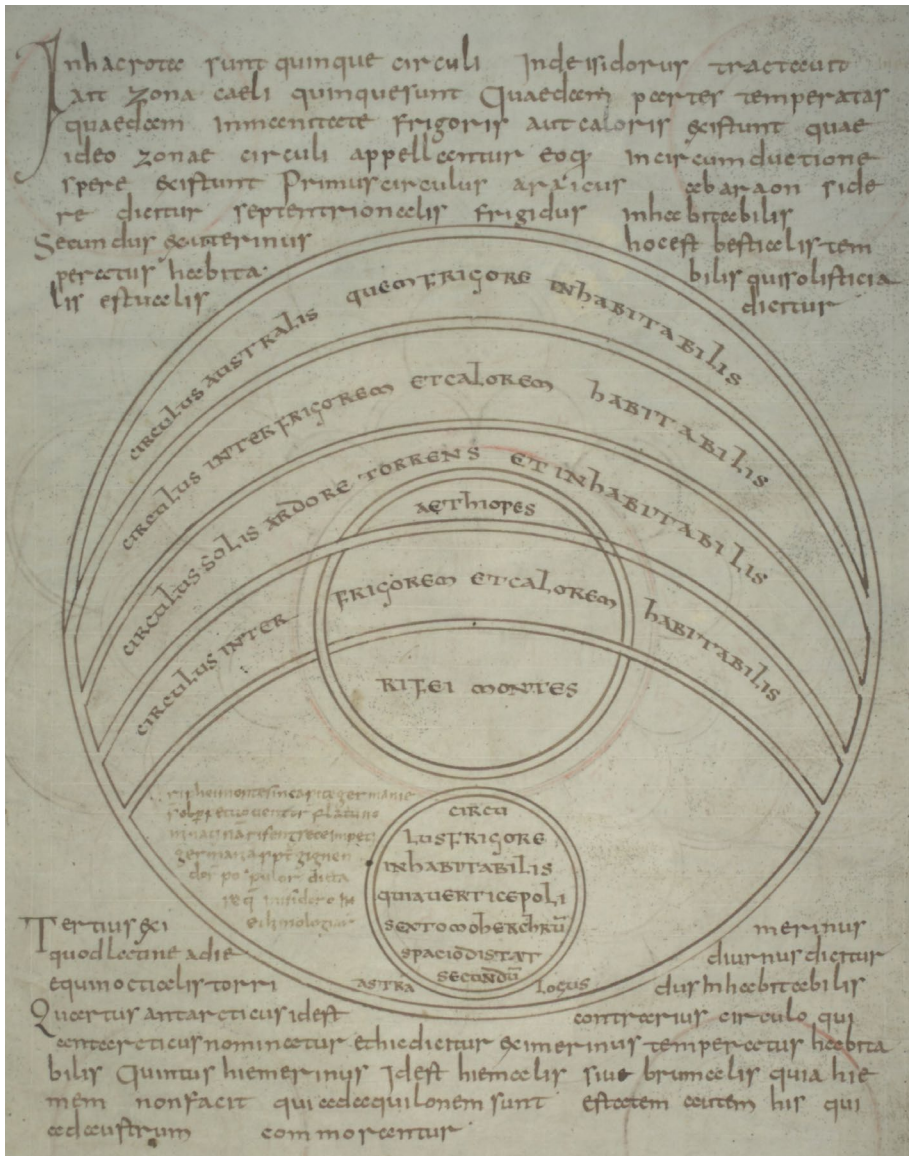 In hac rota sunt quinque circuli Inde isidorus tractavit
ait zona caeli quinque sunt Quaedam partes temperatas
quaedam inmanitate frigoris aut caloris existunt quae
ideo zonae circuli appellantur eoq in circumductione
spere existunt Primus circulus arcticus ab araon side
re dicitur septentrionalis frigidus inhabitabilis
Secundus exuterinus hoc est bestialis tem
peratus habita bilis qui solisticia
lis estualis dicitur
CIRCULUS AUSTRALIS QUEM FRIGORE INHABITABILIS
CIRCULUS INTER FRIGOREM ET CALOREM HABITABILIS
CIRCULUS SOLIS ARDORE TORRENS ET INHABITABILIS
AETHIOPES
CIRCULUS INTER FRIGOREM ET CALOREM HABITABILIS
RIFEI MONTES
riphei montes in capite germanie
germania
dicta
CIRCU
LUS FRIGORE
INHABITABILIS
QUIA UERTICE POLI
SEXTO
SPACIO DISTAT
SECUNDU
ASTRA LOCUS
Tertius exi merinus
quod latine a die diurnus dicitur
equinoctialis torri dus inhabitabilis
Quartus antarcticus idest contrarius circulo qui
antarcticus nominatur et hic dicitur eximerinus temperatus habita
bilis Quintus hiemerinus Idest hiemalis sive brumalis quia hie
mem non facit qui ad aquilonem sunt estatem autem his qui
ad austrum commorantur